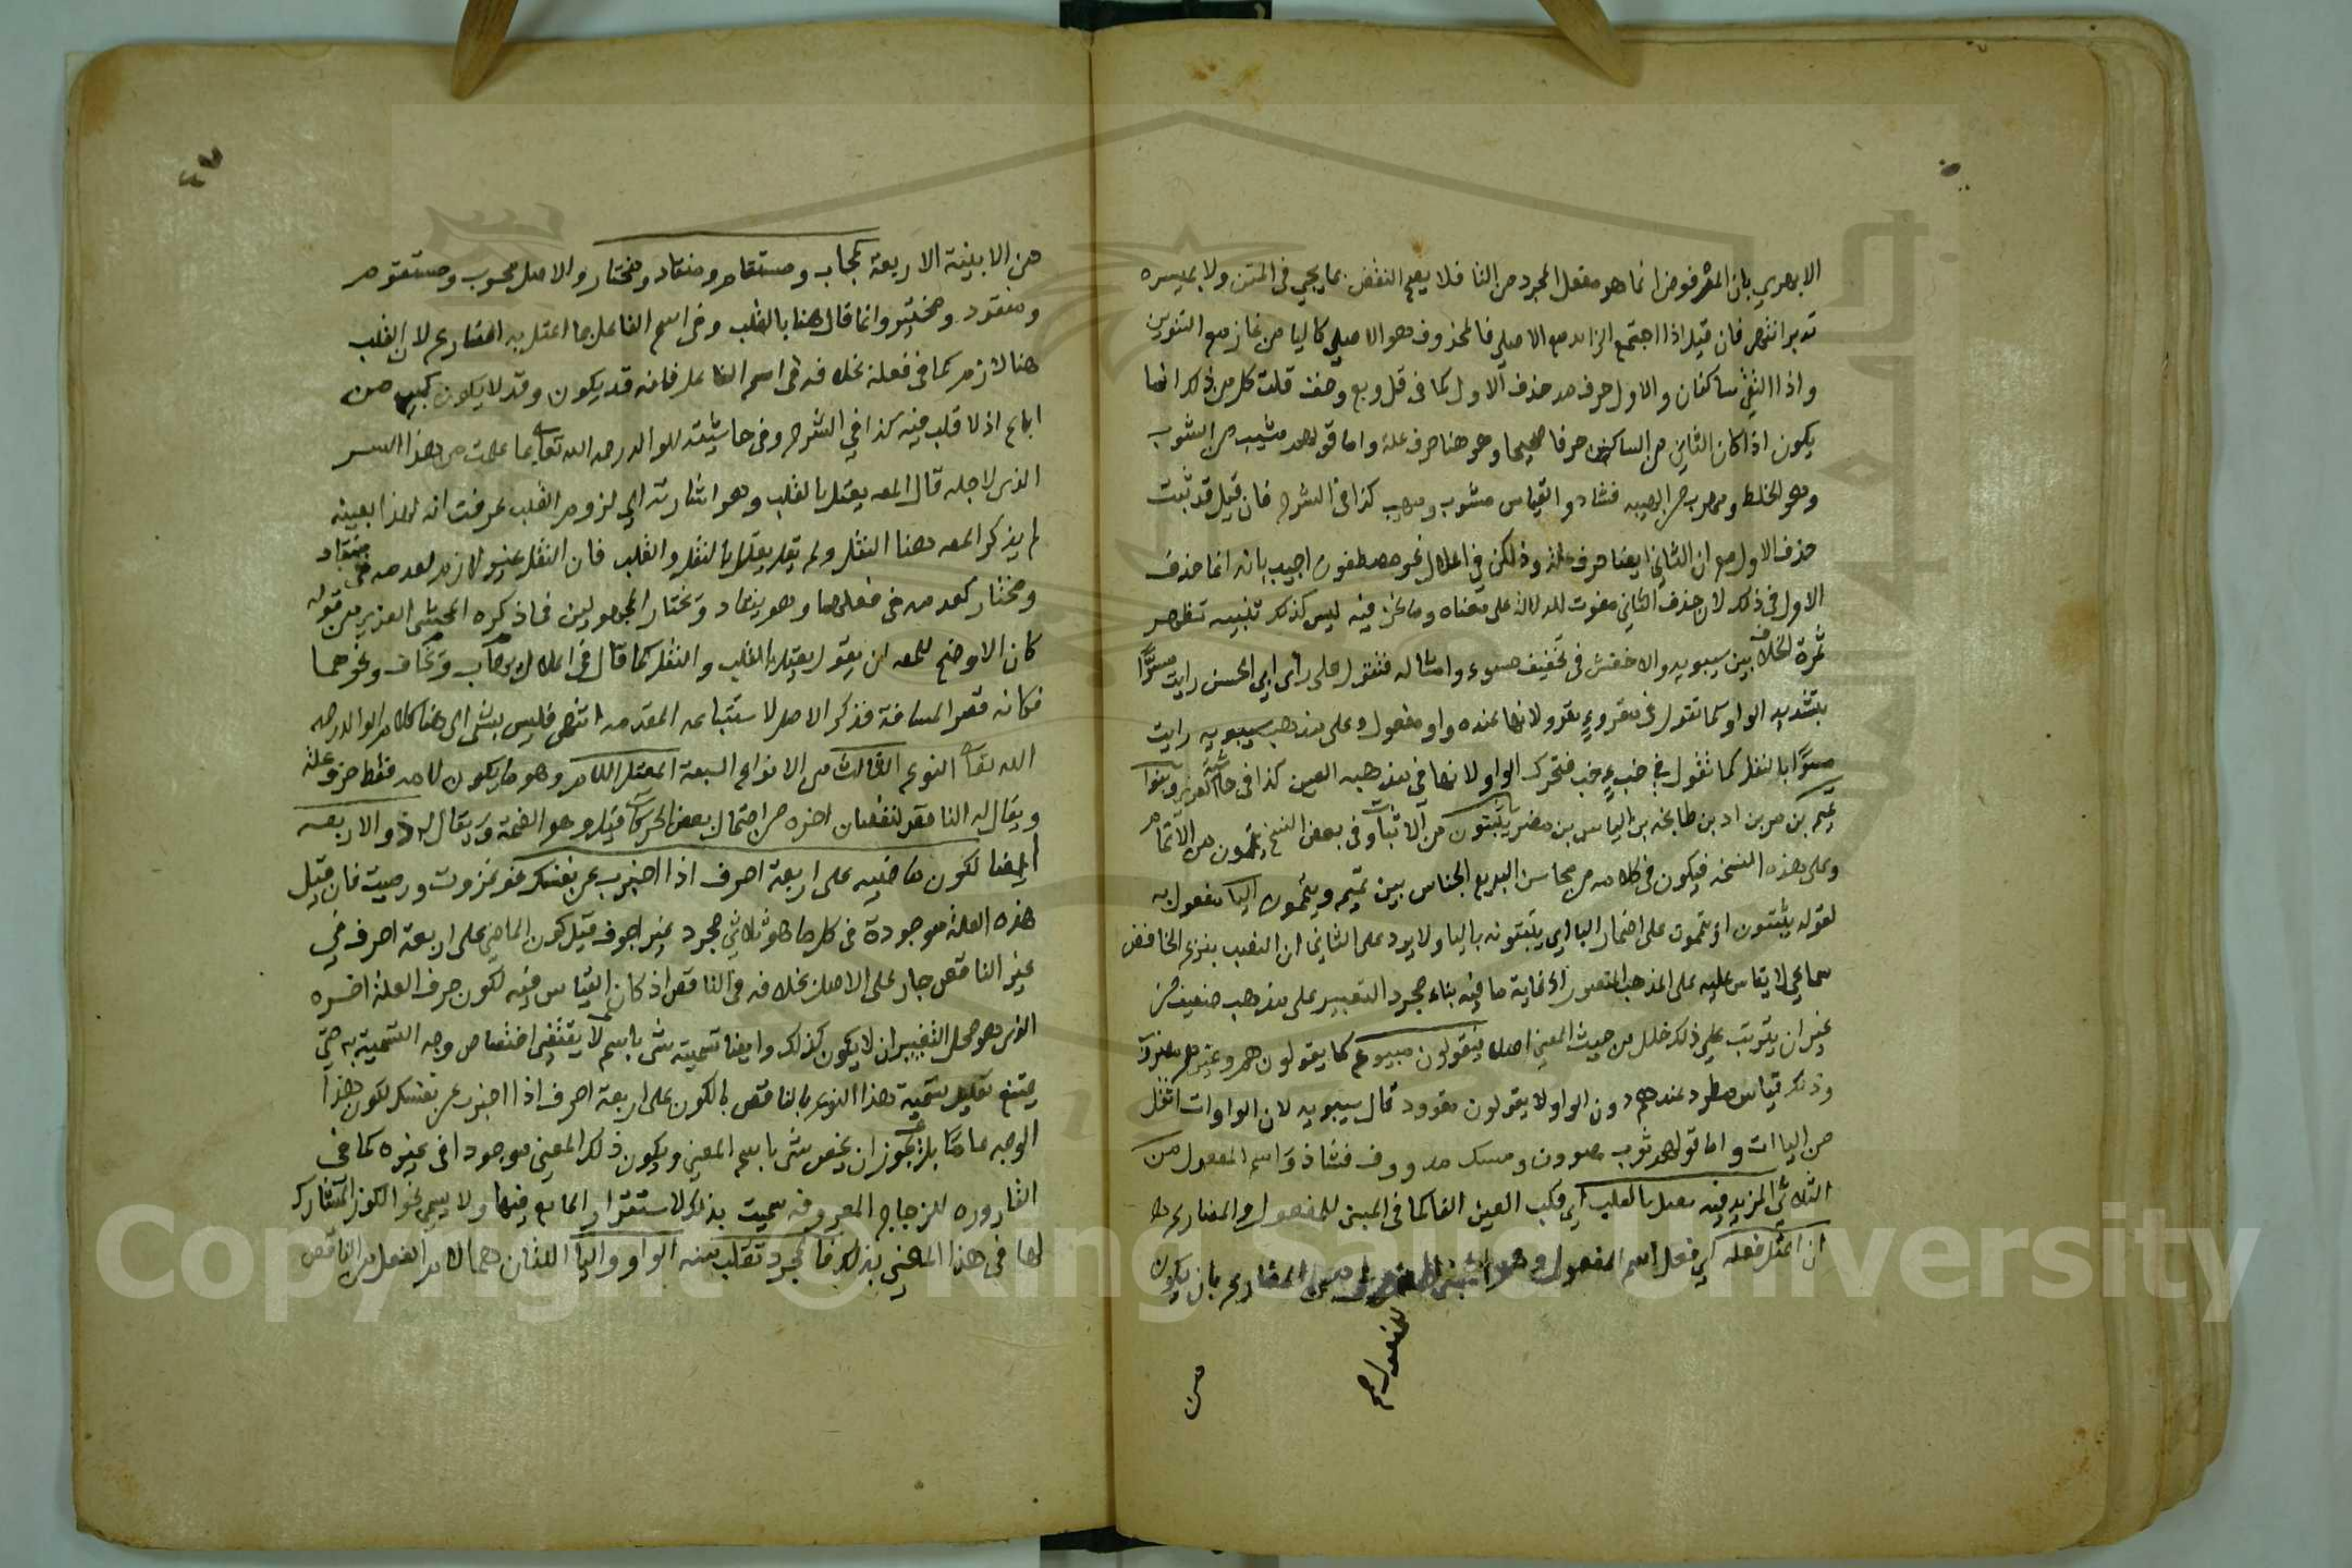 الابهري بان المفروض انما هو مفعل المجرد من التا فلا يصح النقض بما يجي في المتن ولا بميسره
تدبر انتهى فان قيل اذا اجتمع الزايد مع الاصلي فالمحذوف هو الاصلي كاليا من غاز مع التنوين
واذا التقى ساكنان والاول حرف مد حذف الاول كما في قل وبع وخف قلت كل من ذلك انما
يكون اذا كان الثاني من الساكنين حرفا صحيحا وهو هنا حرف علة واما قولهم مشيب من الشوب
وهو الخلط ومهوب من الهيبه فشاذ والقياس مشوب ومهيب كذا في الشرح فان قيل قد ثبت
حذف الاول مع ان الثاني ايضا حرف علة وذلك في اعلال نحو مصطفون اجيب بانه انما حذف
الاول في ذلك لان حذف الثاني مفوت للدلالة على معناه وما نحن فيه ليس كذلك تنبيه تظهر
ثمرة الخلاف بين سيبويه والاخفش في تخفيف مسوء وامثاله فتقول على رأى ابي الحسن رايت مسوًّا
بتشديد الواو كما تقول في مقروءٍ مقرو لانها عنده واو مفعول وعلى مذهب سيبويه رايت
مسوًا بالنقل كما تقول في خبءٍ خب فتحرك الواو لانها في مذهبه العين كذا في حاشية العزيز وبنوا
تميم بن مر بن اد بن طابخه بن الياس بن مضر يثبتون من الاثبات وفي بعض النسخ يتمون من الاتمام
وعلى هذه النسخه فيكون في كلامه من محاسن البديع الجناس بين تميم ويتمون اليا مفعول به
لقوله يثبتون او يتمون على اضمار البا اي يثبتونه باليا ولا يرد على الثاني ان النصب بنزع الخافض
سماعي لا يقاس عليه على المذهب المنصور اذ غاية ما فيه بناء مجرد التعبير على مذهب ضعيف من
غير ان يترتب على ذلك خلل من حيث المعنى اصلا فيقولون مبيوع كما يقولون هم وغيرهم مضروب
وذلك قياس مطرد عندهم دون الواو لا يقولون مقوود قال سيبويه لان الواوات اثقل
من الياات واما قولهم ثوب مصوون ومسك مدووف فشاذ واسم المفعول من
الثلاثي المزيد فيه معل بالقلب اي قلب العين الفا كما في المبني للمفعول والمضارع
ان اعتل فعله اي فعل اسم المفعول وهو المبني للمفعول من المضارع بان يكون
للمفعول صح
من
٤٧
من الابنية الاربعة كمجاب ومستقام ومنقاد ومختار والاصل مجوب ومستقوم
ومنقود ومختير وانما قال هنا بالقلب وفي اسم الفاعل بما اعتل به المضارع لان القلب
هنا لازم كما في فعله بخلافه في اسم الفاعل فانه قد يكون وقد لا يكون كمبيع من
اباع اذ لا قلب فيه كذا في الشرح وفي حاشيته للوالد رحمه الله تعالى بما علمت من هذا السر
الذي لاجله قال المص يعتل بالقلب وهو اشارته الى لزوم القلب عرفت انه لهذا بعينه
لم يذكر المص هنا النقل ولم يقل يعتل بالنقل والقلب فان النقل غير لازم لعدمه في منقاد
ومختار كعدمه في فعلهما وهو ينقاد ويختار المجهولين فما ذكره المحشى العزيز من قوله
كان الاوضح للمص ان يقول يعتل بالقلب والنقل كما قال في اعلال يهاب ويخاف ونحوهما
فكانه قصر المسافة فذكر الاصل لاستتباعه المقدمه انتهى فليس بشى الى هنا كلام الوالد رحمه
الله تعالى النوع الثالث من الانواع السبعة المعتل اللام وهو ما يكون لامه فقط حرف علة
ويقال له الناقص لنقصان اخره من احتمال بعض الحركات قيل وهو الضمة ويقال له ذو الاربعه
ايضا لكون ماضيه على اربعة احرف اذا اخبرت عن نفسك نحو غزوت ورميت فان قيل
هذه العلة موجودة في كل ما هو ثلاثي مجرد غير اجوف قيل كون الماضي على اربعة احرف في
غير الناقص جار على الاصل بخلافه في الناقص اذ كان القياس فيه لكون حرف العلة اخره
الذي هو محل التغيير ان لا يكون كذلك وايضا تسمية شى باسم لا يقتضي اختصاص وجه التسمية به حتى
يمتنع تعليل تسمية هذا النوع بالناقص بالكون على اربعة احرف اذا اخبرت عن نفسك لكون هذا
الوجه عاما بل يجوز ان يختص شى باسم المعنى ويكون ذلك المعنى موجودا في غيره كما في
القاروره للزجاج المعروفه سميت بذلك لاستقرار المايع فيها ولا يسمى نحو الكوز المشارك
لها في هذا المعنى بذلك فالمجرد تقلب منه الواو واليا اللذان هما لام الفعل من الناقص